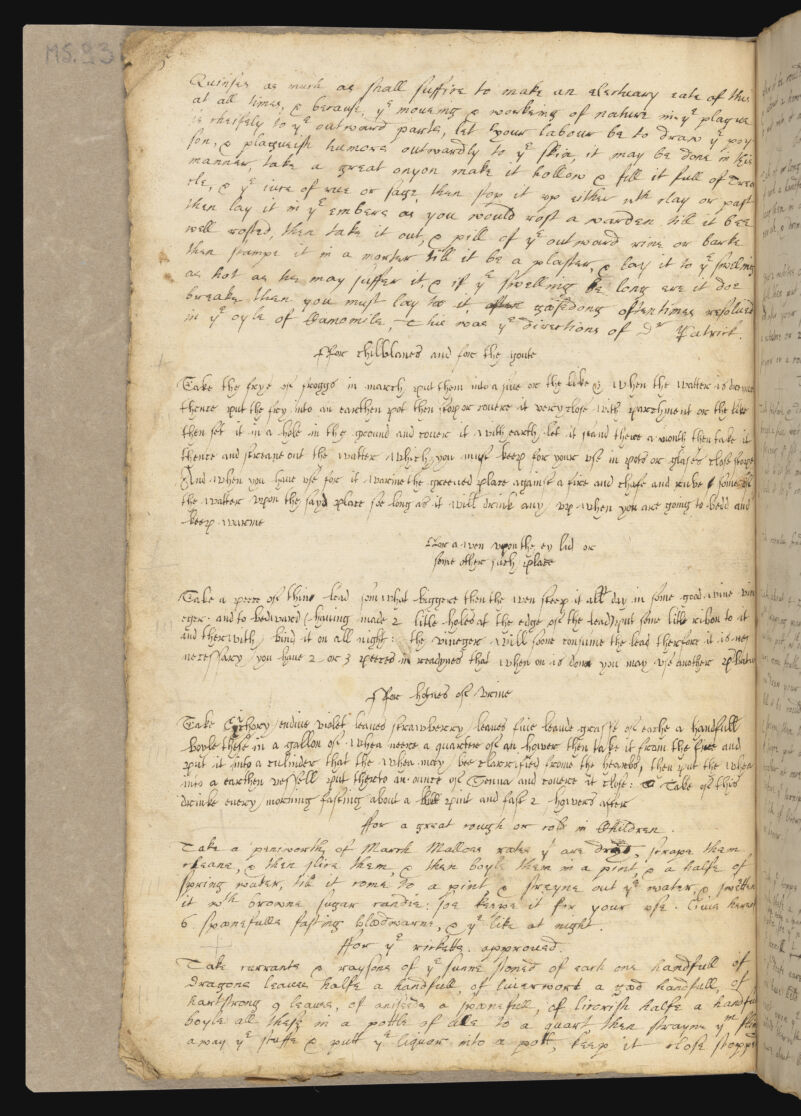 MS.931
Quinses as much as shall suffice to make an electuary eate of this
at all times, & because, yᵉ moueing & working of nature in yᵉ plague
is cheifely to yᵉ outward parts, let your labour be to draw yᵉ poy
son, & plagueish humors outwardly to yᵉ skin, it may be done in this
manner, take a great onyon make it hollow & fill it full of Trea
cle, & yᵉ iuce of rue or sage, then stop it vp either wth clay or past
then lay it in yᵉ embers as you would rost a warden till it bee
well rosted, then take it out, & pill of yᵉ outward rine or barke
then stampe it in a morter till it be a plaster, & lay it to yᵉ swelling
as hot as he may suffer it, & if yᵉ swelling be long ere it doe
breake then you must lay to it, oftentimes resolued
in yᵉ oyle of Camomile, this was yᵉ directions of Dʳ Patrick.
ffor chilblanes and for the goute
Take the frye of froggs in march put them into a siue or the like & when the watter is
thence put the fry into an earthen pot then stop or couere it very close with parchment or the like
then set it in a hole in the ground and couer it with earth let it stand there a month then take it
thence and streane out the watter which you must keep for your vse in pots or glases close stopt
And when you haue vse for it warme the greeued place against a fire and chafe and rube some of
the watter vpon the sayd place soe long as it will drink any vp when you are going to bedd and
keep warme
ffor a wen vpon the ey lid or
some other such place
Take a peece of thine lead som what biggere then the wen steep it all day in some good wine vin
eger and to bedward (hauing made 2 litle holes at the edge of the lead) put some litle riben to it
and therwith bind it on all night: the vineger will soone consume the lead therfore it is
necessary you haue 2 or 3 peeces in readynes that when on is done you may vse another
ffor hotnes of vrine
Take Cychory endiue violet leaues strawberry leaues fiue leaued grasse of eache a handfull
boyle these in a gallon of whea neere a quarter of an hower then take it from the fire and
put it into a cullinder that the whea may bee clarrified frome the hearbs, then put the whea
into a earthen vessell put therto an ounce of Senna and couere it close: Take of this
drinke euery morning fasting about a pint and fast 2 howers after
ffor a great cough or cold in Children.
Take a peniworth of March Mallow rates yᵗ are, scrape them
cleane, & then slice them, & then boyle them in a pint, & a halfe of
spring water, till it come to a pint & streyne out yᵉ water, & sweeten
it wth browne sugar candie: soe keepe it for your vse. Giue hereof
6 spoonefulls fasting bloodwarme, & yᵉ like at night.
ffor yᵉ rickets. approued.
Take currants & raysons of yᵉ sunne stoned of each one handfull of
dragons leaues halfe a handfull, of liuerwort a good handfull, of
hartstong 9 leaues, of aniseeds a spoonefull, of licorish halfe a handfull
boyle all these in a pottle of ale to a quart then strayne yᵐ
away yᵉ stuffe & putt yᵉ liquor into a pott, keep it close stopped